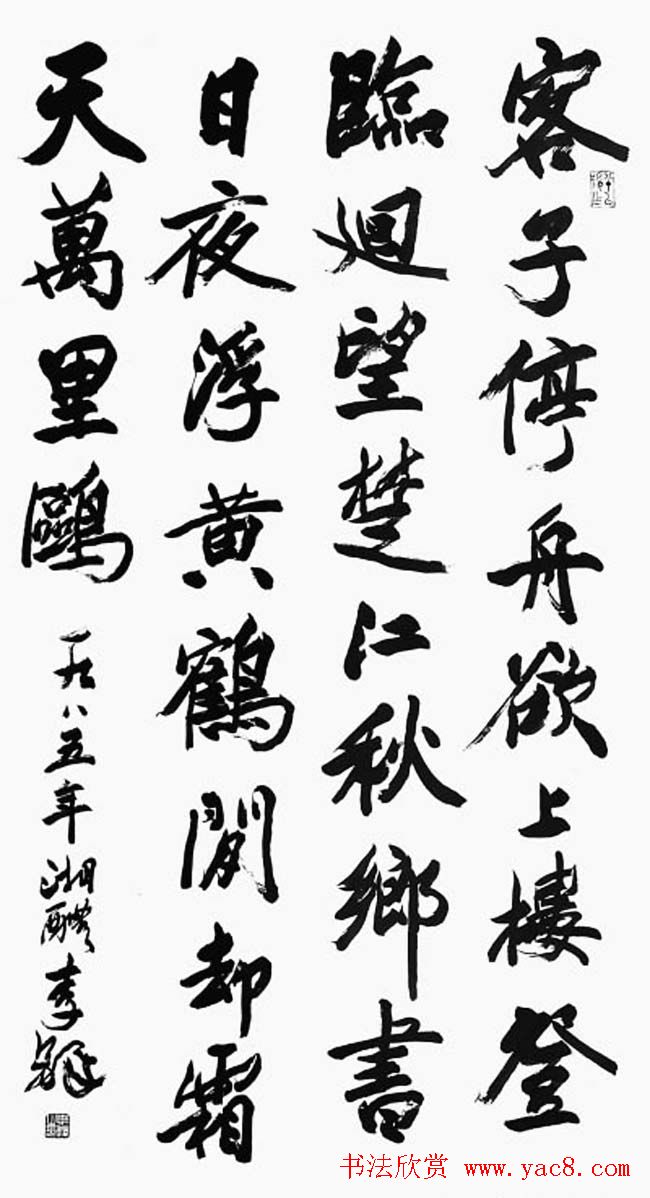 客子停舟欲上樓登
臨迴望楚江秋鄉書
日夜浮黄鶴閒却霜
天萬里鷗
一九八五年湘醴李鐸
书法欣赏 www.yac8.com